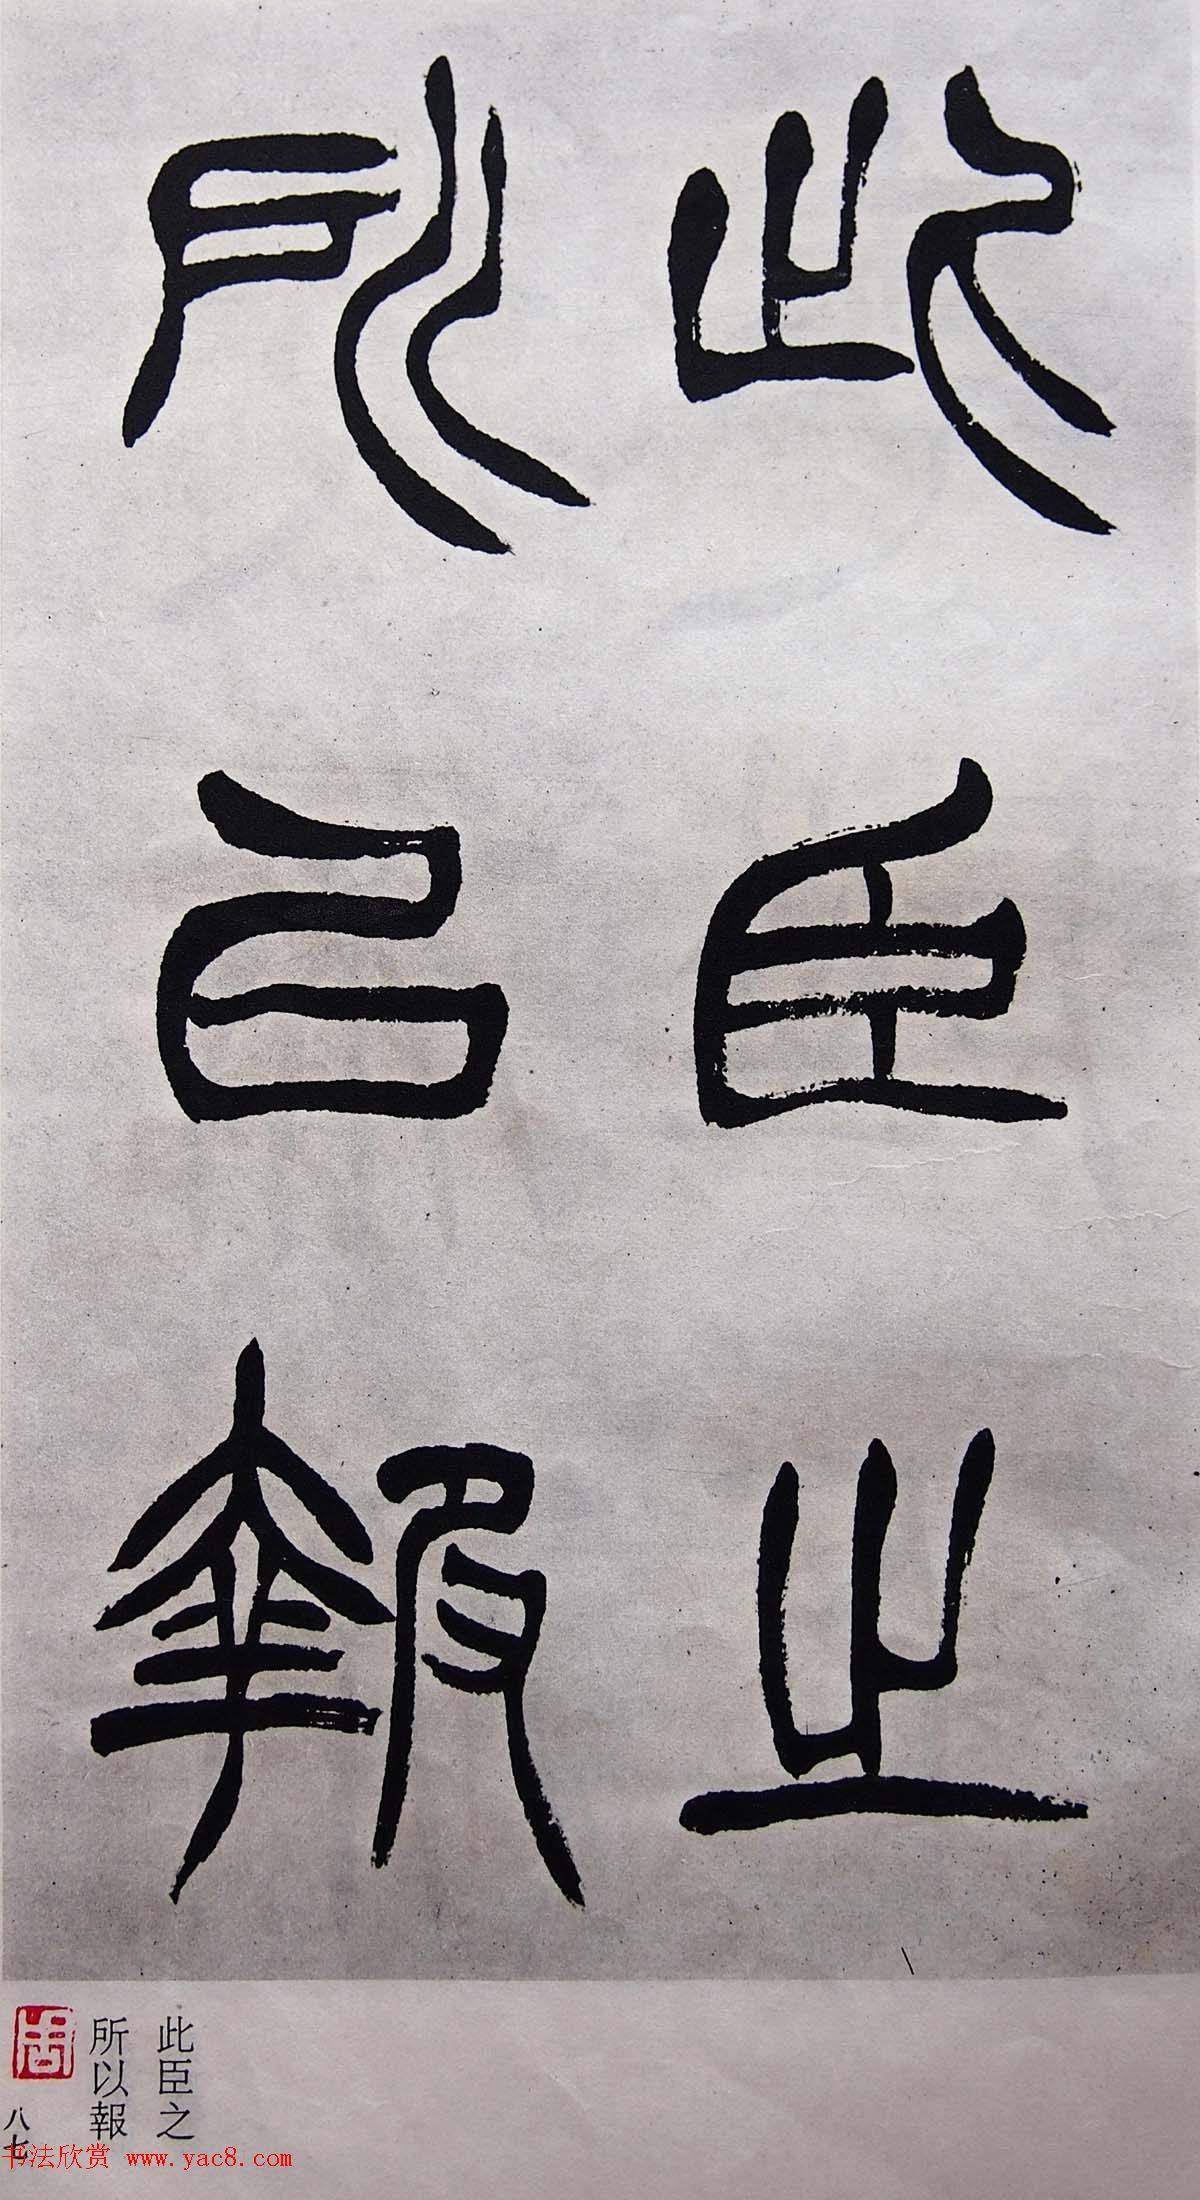 此臣之
所以報
此臣之
所以報
八七
书法欣赏 www.yac8.com